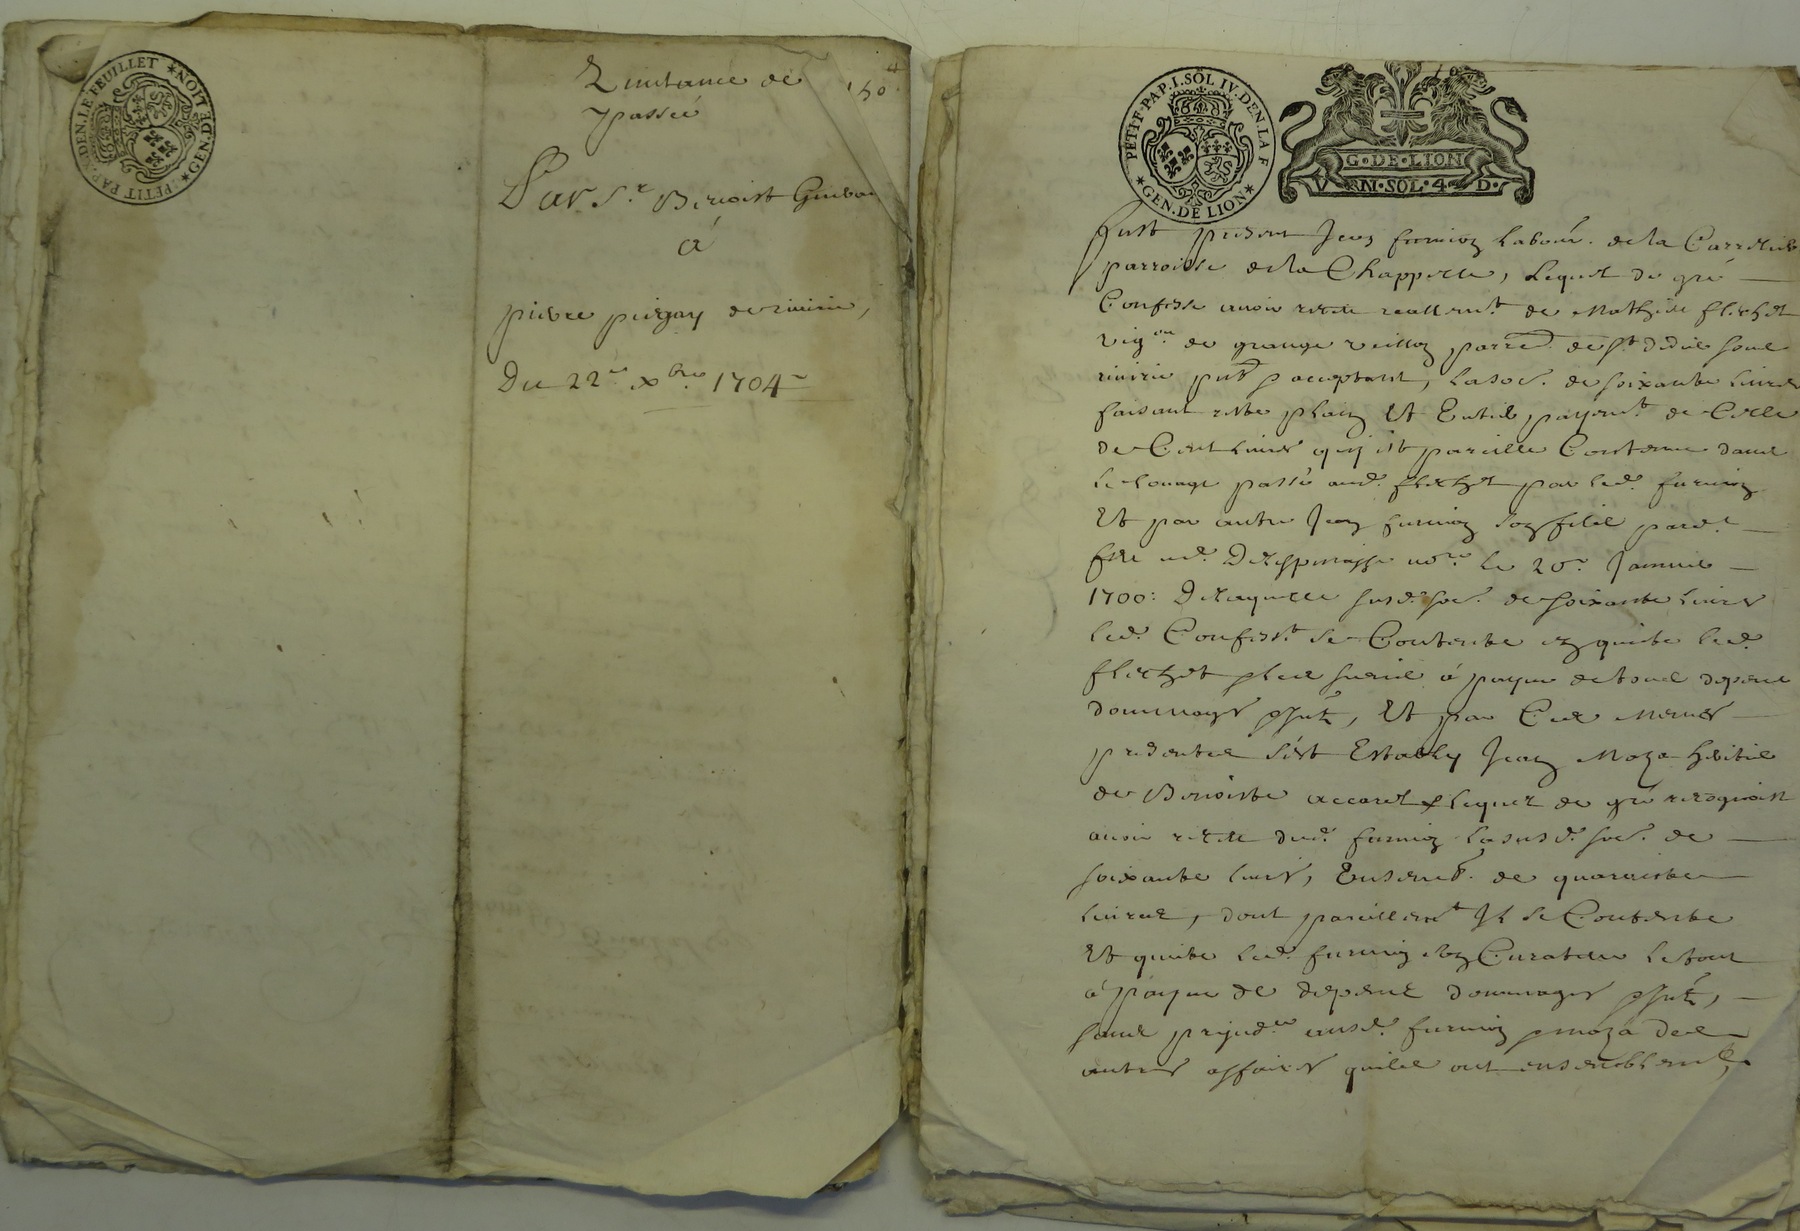 PETIT PAP. DEN. LE FEUILLET * NOIT ED NEG
Quittance de
passée
150
Par Sr Benoist Guibou
à
pierre piegay de rivirie,
Du 22e xbre 1704
PETIT. PAP. I. SOL IV. DEN. LA F
* GEN. DE LION *
G. DE LION
VN. SOL. 4. D.
Fust present Jean furnion Labour. de la
parroisse de la Chappelle, Lequel de gré
Confesse avoir receu reallemt. de Mathieu flechet
vigon. de grange parre. de st didier soubz
rivirie pnt & acceptant, la soe. de soixante livres
faisant reste plain Et Entier payemt. de Celle
de Cent livres quy est pareille Contenue dans
Le Louage passé aud. flechet par led. furnion
Et par autre Jean furnion son fils pard.t
feu me. Delespinasse nore. Le 20e. Janvier
1700: De laquelle susd. soe. de soixante livres
led. Confest. se Contente en quitte led.
flechet avec promesse à payne de tous depens
dommages & Intz, Et par Ces Mesmes
presentes s'est Estably Jean Moza heritier
de Benoiste accaret Lequel de gré recognoit
avoir receu dud. furnion la susd. soe. de
soixante livres, Ensemb. de quarante
livres, dont pareillemt. Il se Contente
Et quitte led. furnion son Curateur le tout
à payne de depens dommages & Intz,
sans prejudce ausd. furnion & moza des
autres affaires quils ont ensemblemt.